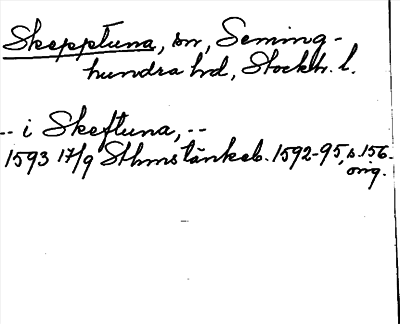 Skepptuna, sn, Seming-
hundra hd, Stockh. l.
-- i Skeftuna, --
1593 17/9 Sthms tänkeb. 1592-95, s. 156.
orig.